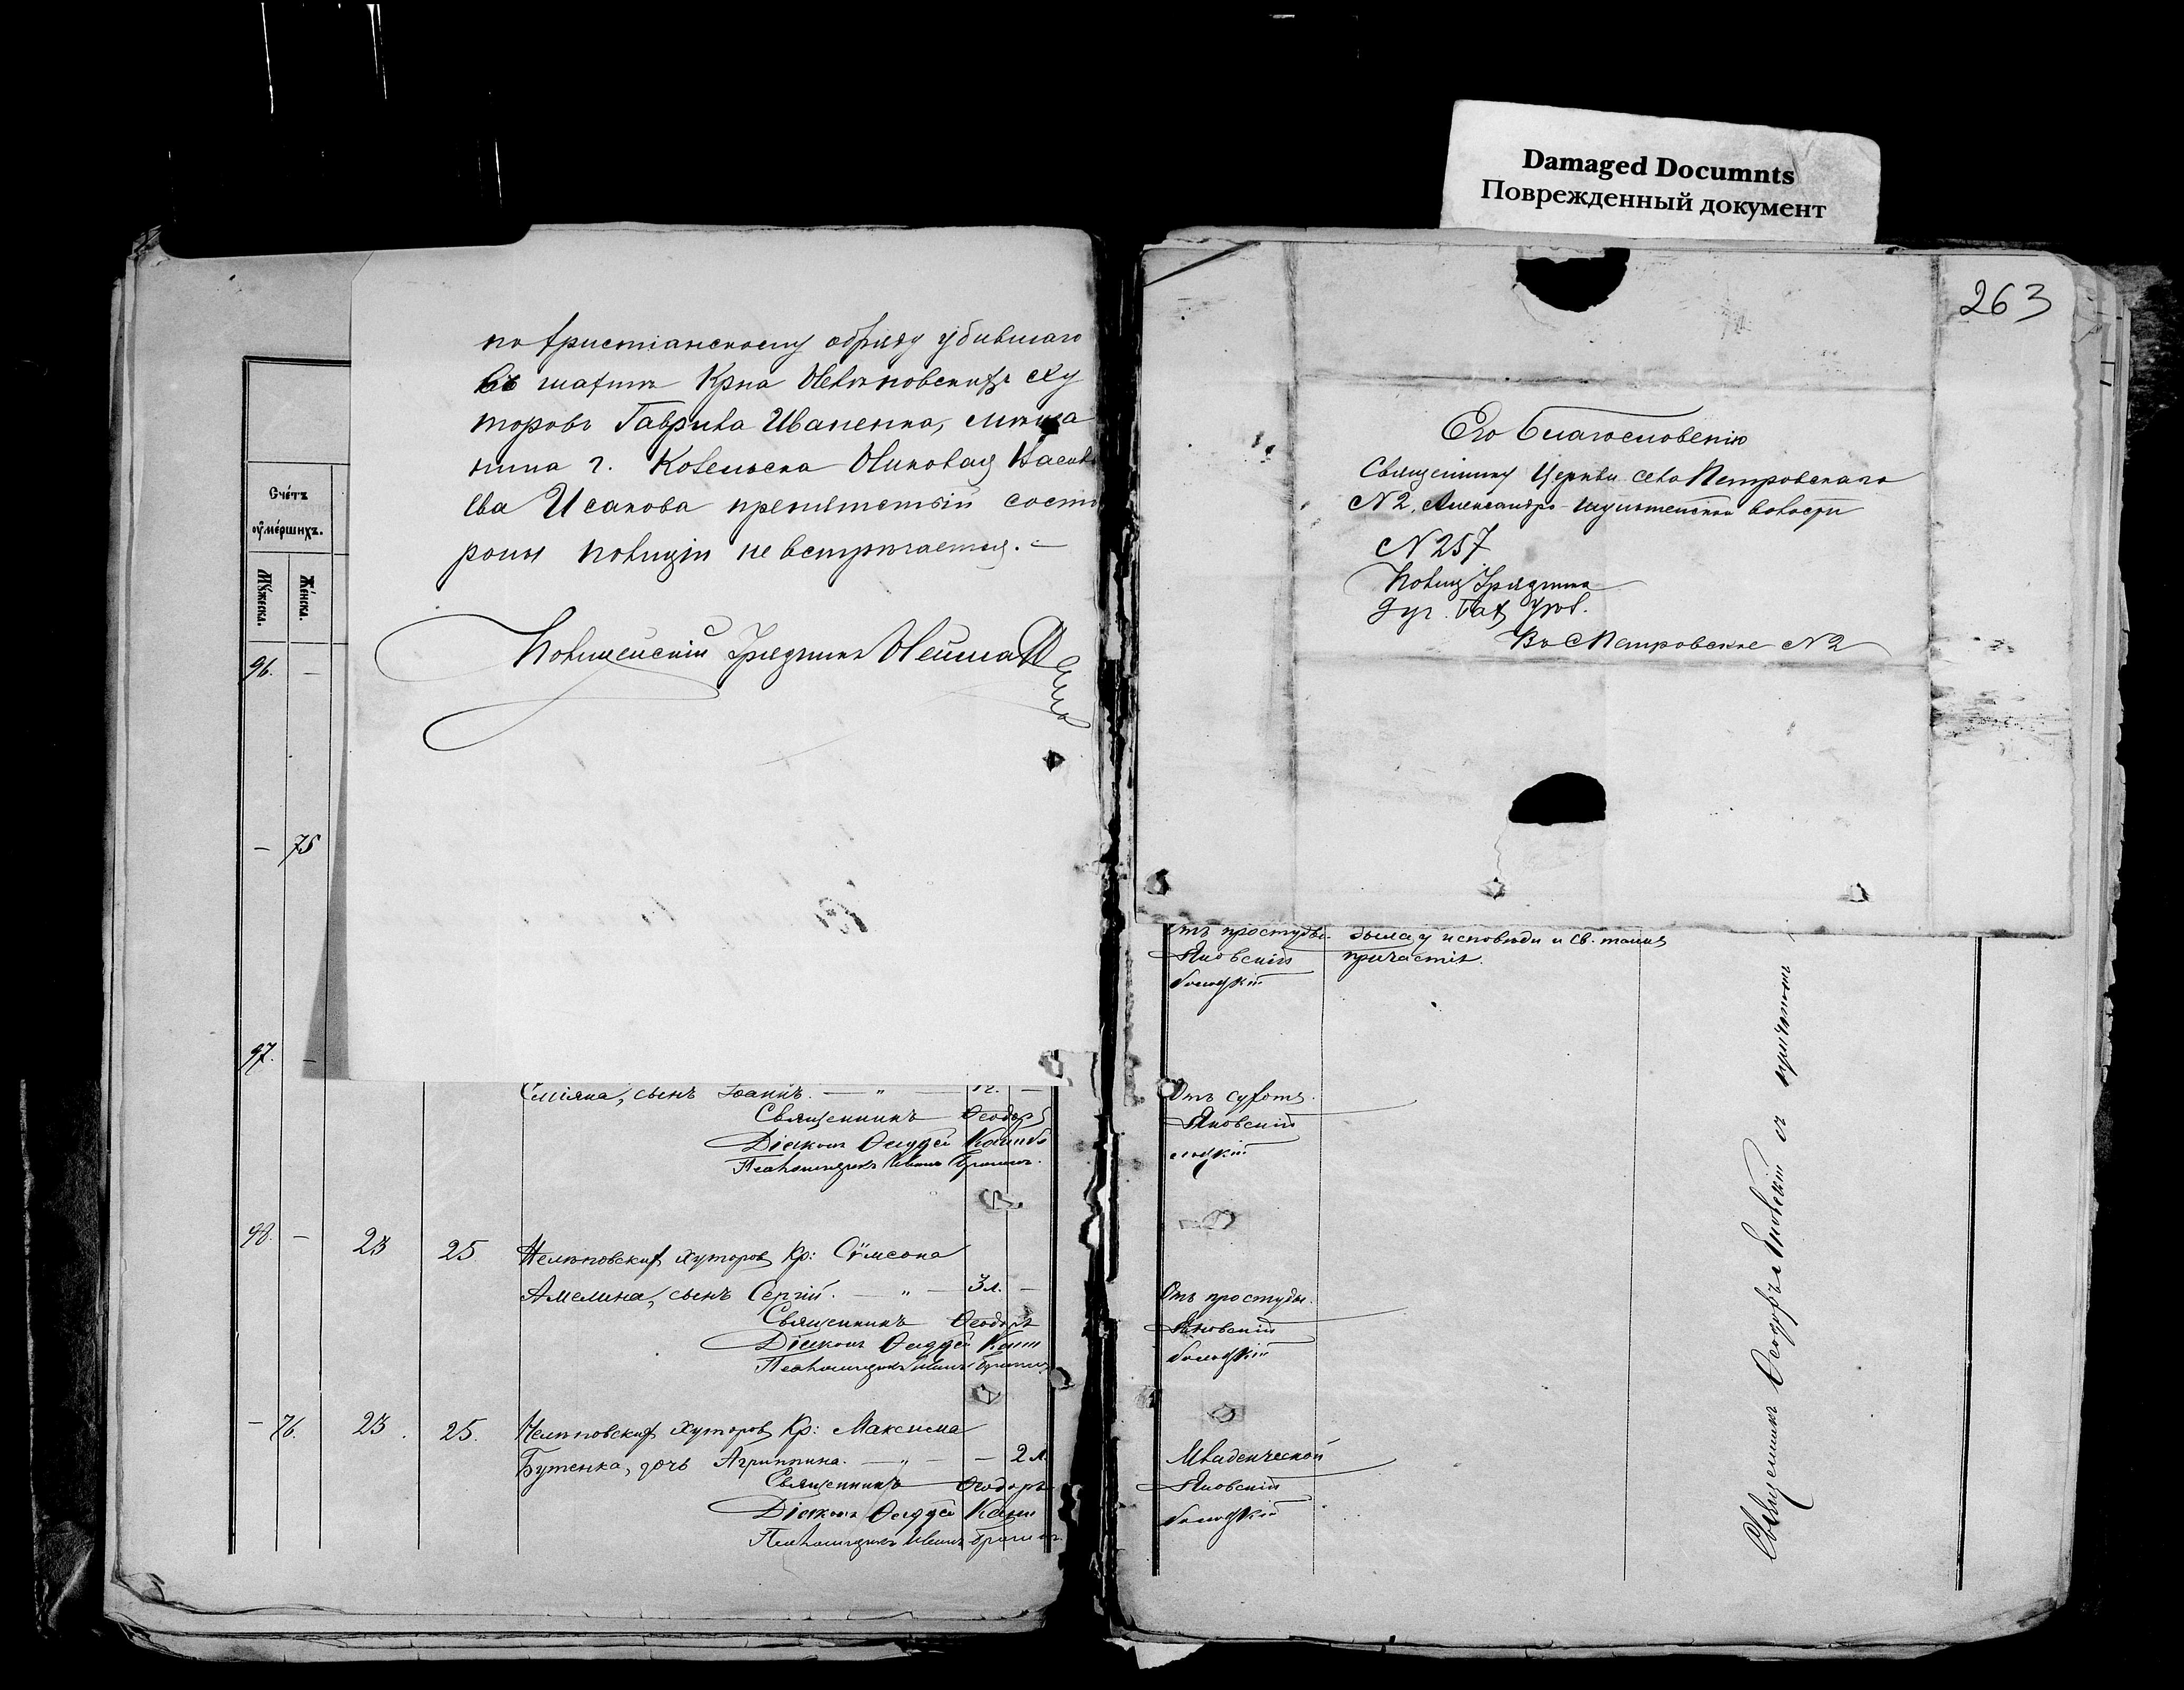 Damaged Documnts
Поврежденный документ
263
по христіанскому обряду убившаго
въ шахтѣ Крна Нелѣповскихъ Ху
торовъ Гаврила Иваненка, мѣща
нина г. Козельска Николая Васил
ева Исакова препятствій со сто
роны Полиціи не встрѣчается. –
Полицейскій Урядникъ
Счéтъ
оумéршихъ.
Мꙋжеска.
Жéнска.
96. –
– 75
97. –
сынъ Іоаннъ. — „ —
Священникъ Ѳеодоръ
Діаконъ Ѳаддей
Псаломщикъ Иванъ
98. – 23 25. Нелѣповскихъ хуторовъ Кр: Сѵмеона
Амелина, сынъ Сергій. — „ — 3 л. –
Священникъ Ѳеодоръ
Діаконъ Ѳаддей
Псаломщикъ Иванъ
– 76. 23. 25. Нелѣповскихъ хуторовъ Кр: Максима
Бутенка, дочь Агриппина. — „ — – 2 л.
Священникъ Ѳеодоръ
Діаконъ Ѳаддей
Псаломщикъ Иванъ
Его Благословенію
Священнику Церкви села Петровскаго
N 2, Александро-Шультенской волости
N 257
Полиц Урядника
Въ С Петровское N 2
отъ простуды. была у исповѣди и св. таинъ
Яновскій причастія.
Отъ сухоты.
Яновскій
Отъ простуды.
Яновскій
Младенческой
Яновскій
Священникъ Ѳеодоръ Яновскій съ причтомъ